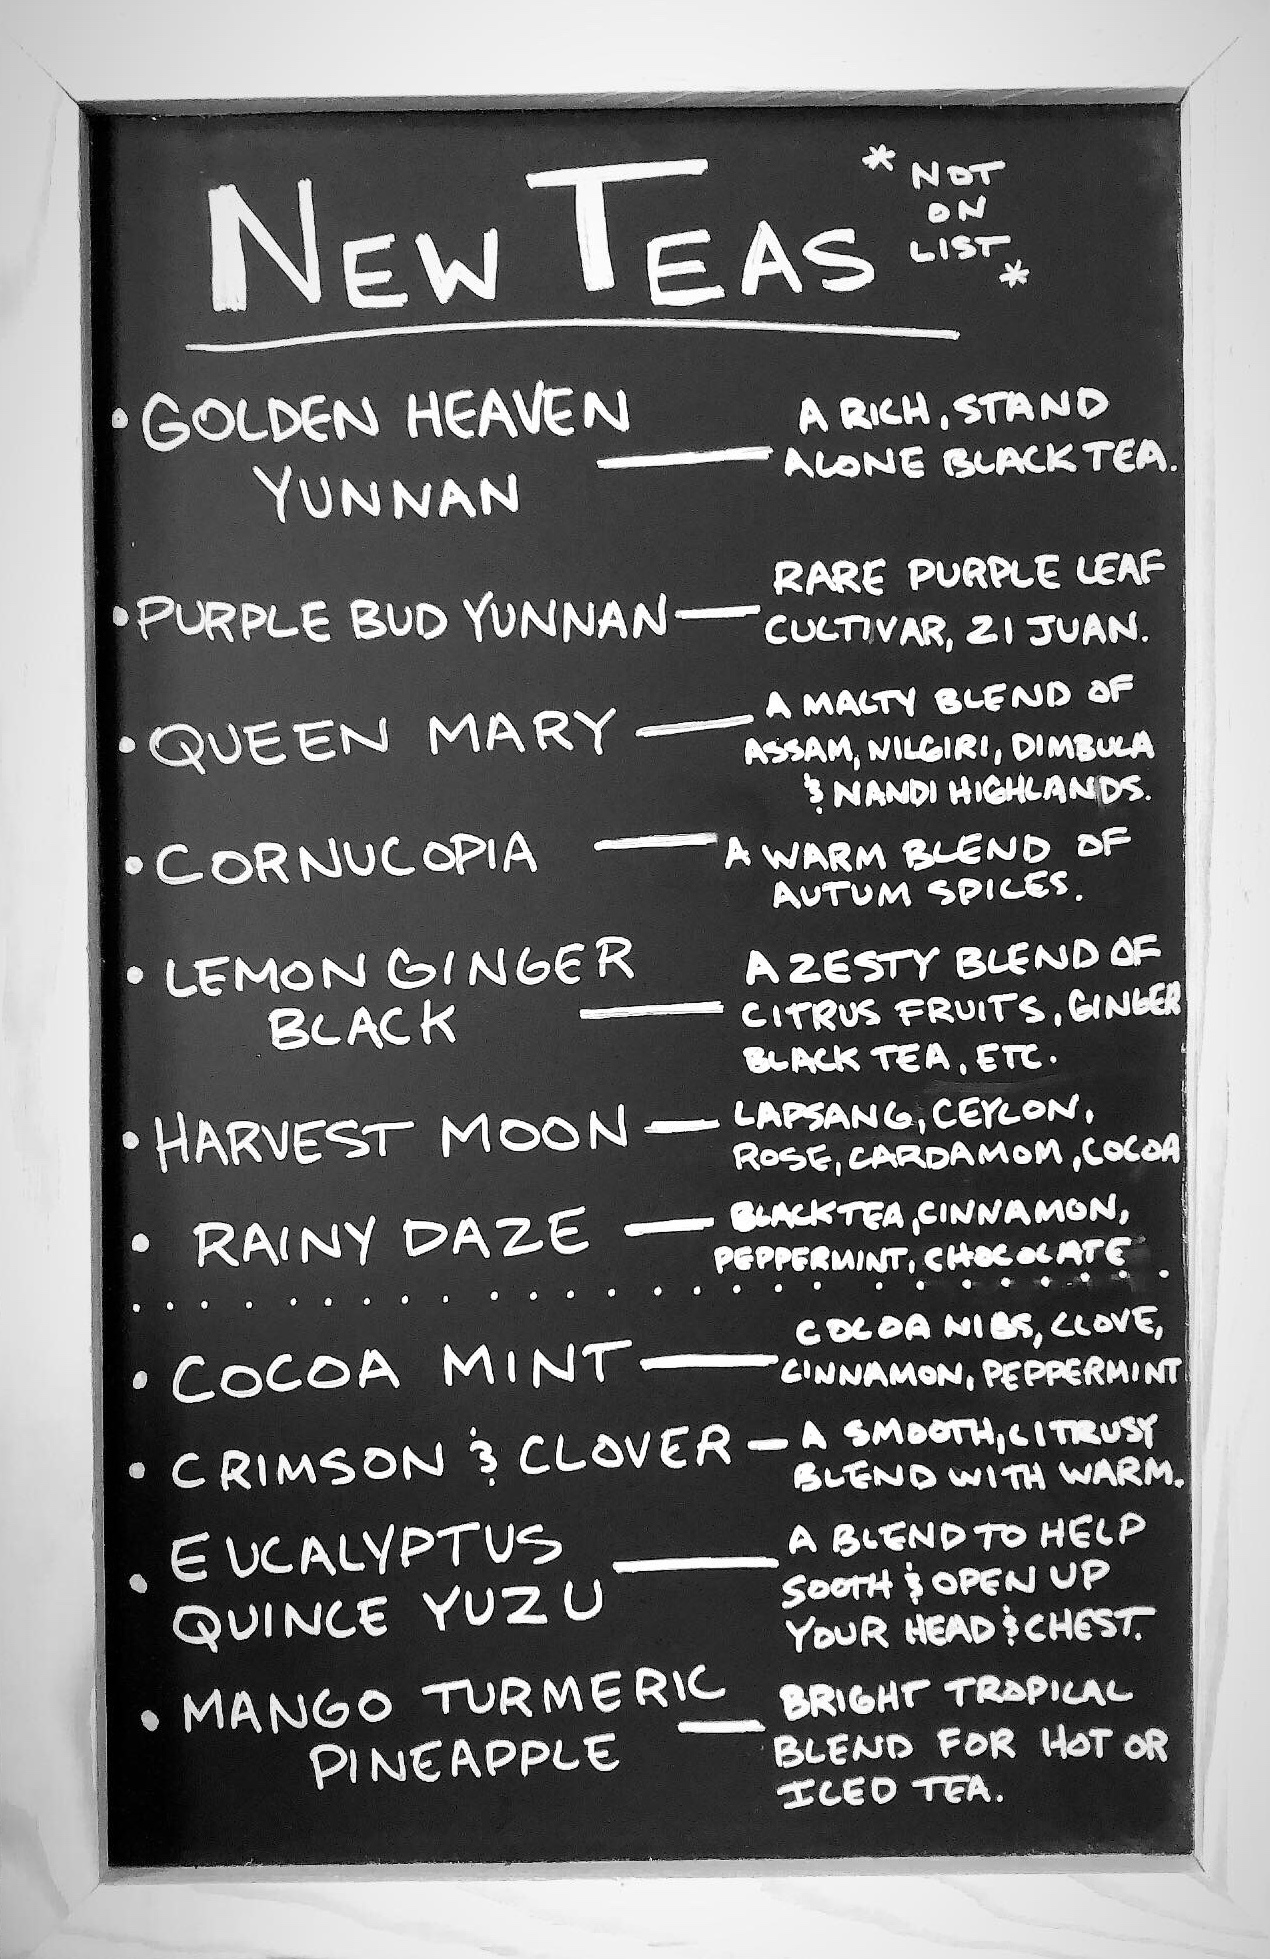 NEW TEAS
* NOT
ON
LIST *
• GOLDEN HEAVEN
YUNNAN
— A RICH, STAND
ALONE BLACK TEA.
• PURPLE BUD YUNNAN —
RARE PURPLE LEAF
CULTIVAR, ZI JUAN.
• QUEEN MARY —
A MALTY BLEND OF
ASSAM, NILGIRI, DIMBULA
& NANDI HIGHLANDS.
• CORNUCOPIA —
A WARM BLEND OF
AUTUM SPICES.
• LEMON GINGER
BLACK —
A ZESTY BLEND OF
CITRUS FRUITS, GINGER
BLACK TEA, ETC.
• HARVEST MOON —
LAPSANG, CEYLON,
ROSE, CARDAMOM, COCOA
• RAINY DAZE —
BLACK TEA, CINNAMON,
PEPPERMINT, CHOCOLATE
• COCOA MINT —
COCOA NIBS, CLOVE,
CINNAMON, PEPPERMINT
• CRIMSON & CLOVER —
A SMOOTH, CITRUSY
BLEND WITH WARM.
• EUCALYPTUS
QUINCE YUZU —
A BLEND TO HELP
SOOTH & OPEN UP
YOUR HEAD & CHEST.
• MANGO TURMERIC
PINEAPPLE —
BRIGHT TROPICAL
BLEND FOR HOT OR
ICED TEA.